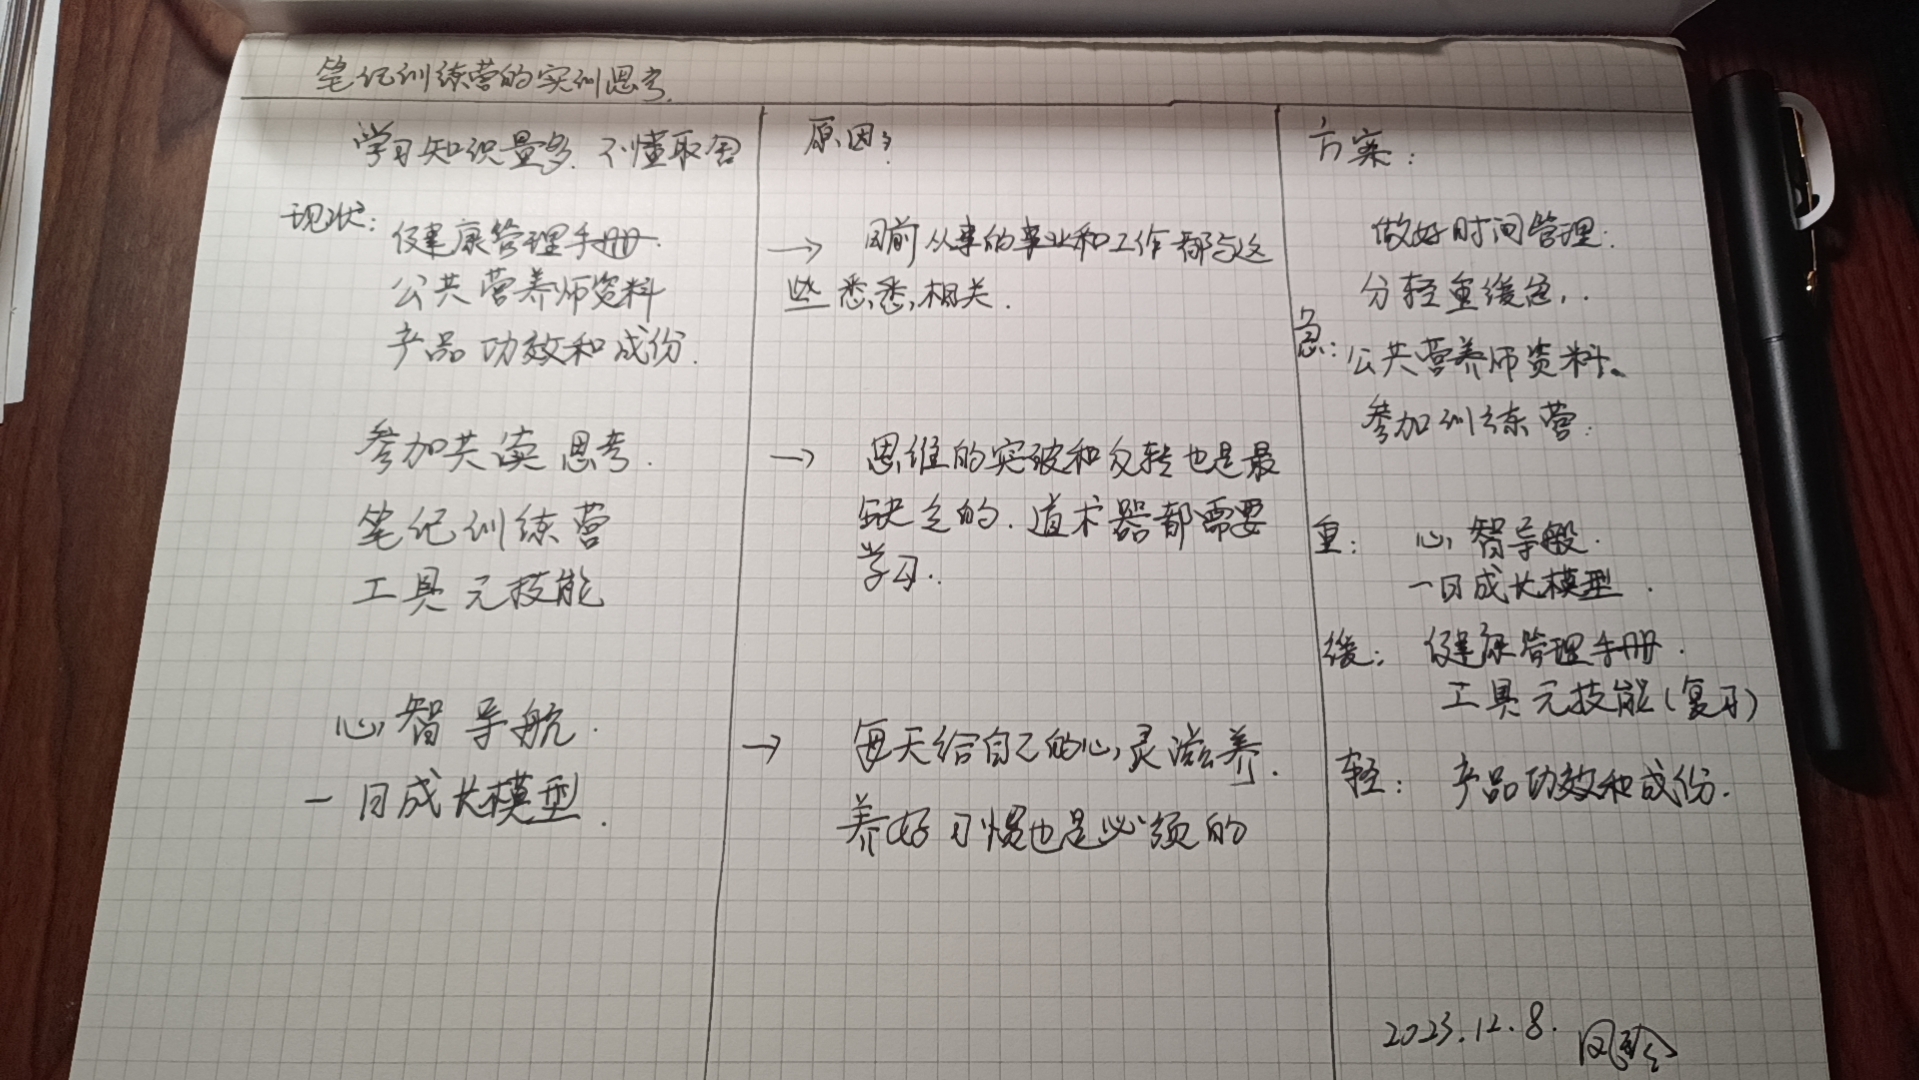 笔记训练营的实训思考.
学习知识量多.不懂取舍
现状:健康管理手册.
公共营养师资料
产品功效和成份.
参加共读思考.
笔记训练营
工具元技能
心智导航.
一日成长模型.
原因:
→ 目前从事的事业和工作都与这
些悉悉相关.
→ 思维的突破和反转也是最
缺乏的.道术器都需要
学习.
→ 每天给自己的心灵滋养.
养好习惯也是必须的
方案:
做好时间管理:
分轻重缓急,.
急:公共营养师资料。
参加训练营:
重: 心智导般.
一日成长模型.
缓: 健康管理手册.
工具元技能(复习)
轻: 产品功效和成份.
2023.12.8.